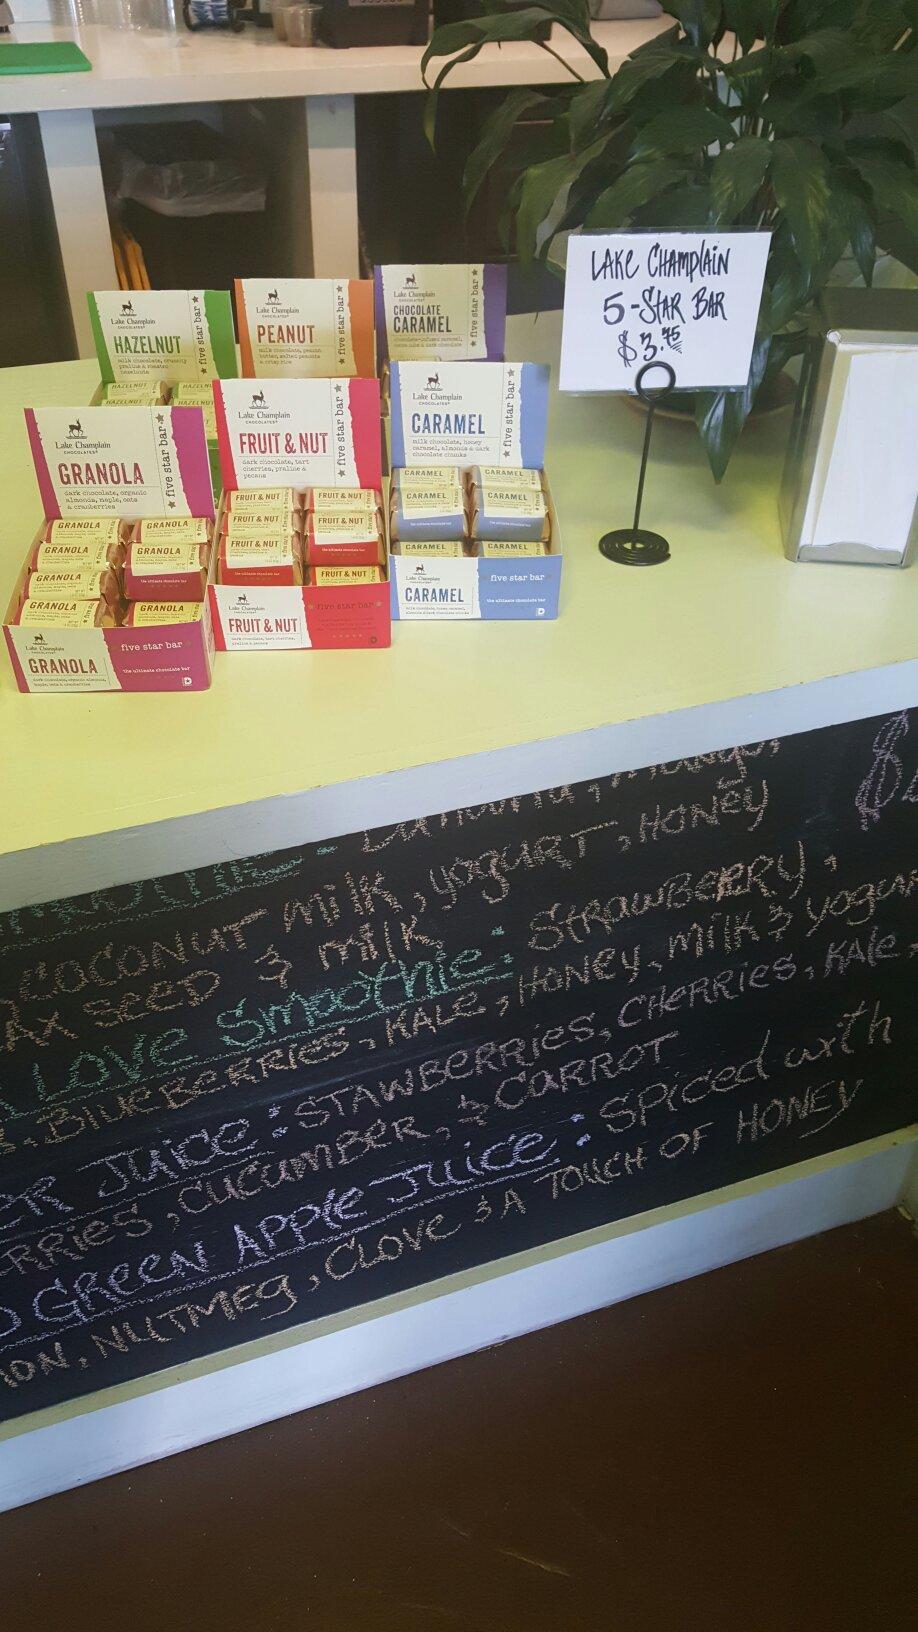 Lake Champlain
CHOCOLATES
HAZELNUT
milk chocolate, crunchy
praline & roasted
hazelnuts
five star bar
HAZELNUT
HAZELNUT
HAZELNUT
Lake Champlain
CHOCOLATES
PEANUT
milk chocolate, peanut
butter, salted peanuts
& crispy rice
five star bar
Lake Champlain
CHOCOLATES
CHOCOLATE
CARAMEL
five star bar
LAKE CHAMPlAiN
5-STAR BAR
$3.75
Lake Champlain
CHOCOLATES
GRANOLA
dark chocolate, organic
almonds, maple, oats
& cranberries
five star bar
GRANOLA
GRANOLA
GRANOLA
GRANOLA
the ultimate chocolate bar
GRANOLA
GRANOLA
GRANOLA
Lake Champlain
CHOCOLATES
GRANOLA
dark chocolate, organic almonds,
maple, oats & cranberries
five star bar
the ultimate chocolate bar
Lake Champlain
CHOCOLATES
FRUIT & NUT
dark chocolate, tart
cherries, praline &
pecans
five star bar
FRUIT & NUT
FRUIT & NUT
FRUIT & NUT
FRUIT & NUT
FRUIT & NUT
FRUIT & NUT
FRUIT & NUT
Lake Champlain
CHOCOLATES
FRUIT & NUT
dark chocolate, tart cherries,
praline & pecans
five star bar
Lake Champlain
CHOCOLATES
CARAMEL
milk chocolate, honey
caramel, almonds & dark
chocolate chunks
five star bar
CARAMEL
CARAMEL
CARAMEL
CARAMEL
CARAMEL
CARAMEL
Lake Champlain
CHOCOLATES
CARAMEL
milk chocolate, honey caramel,
almonds & dark chocolate chunks
five star bar
the ultimate chocolate bar
COCONUT MilK, YOGURT, HONEY
AX SEED & MilK
LOVE SMOOTHiE: STRAWBERRY,
BlUEBERRiES, KALE, HONEY, MilK & YOGUR
ER JUiCE: STAWBERRiES, CHERRiES, KALE
ERRiES, CUCUMBER, & CARROT
D GREEN APPlE JUiCE: SPiCED with
ON, NUTMEG, ClOVE & A TOUCH OF HONEY